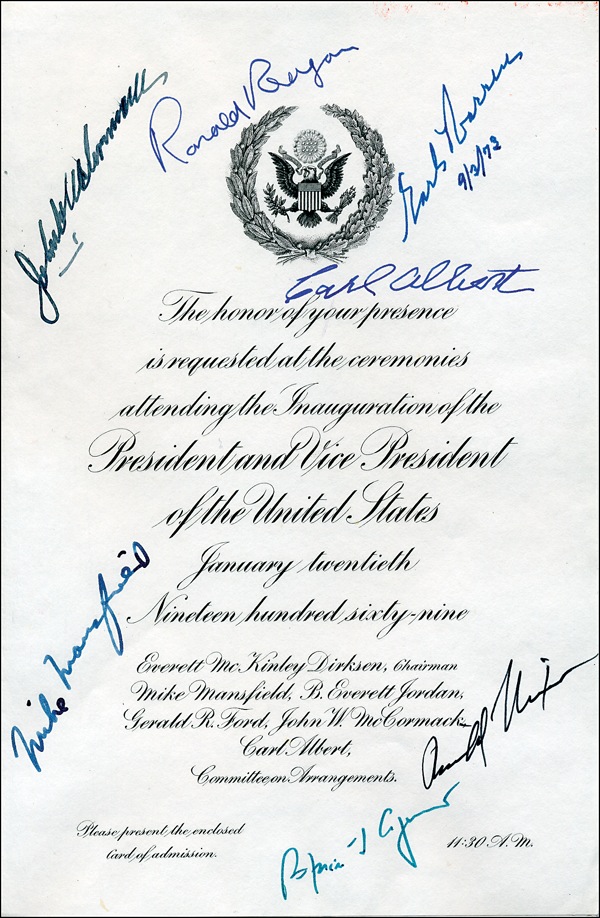 Ronald Reagan
John W. McCormack
Earl Warren
Carl Albert
The honor of your presence
is requested at the ceremonies
attending the Inauguration of the
President and Vice President
of the United States
January twentieth
Nineteen hundred sixty-nine
Mike Mansfield
Everett Mc.Kinley Dirksen, Chairman
Mike Mansfield, B. Everett Jordan,
Gerald R. Ford, John W. McCormack,
Carl Albert,
Committee on Arrangements.
Nixon
Please present the enclosed
Card of admission.
Spiro T Agnew
11:30 A.M.